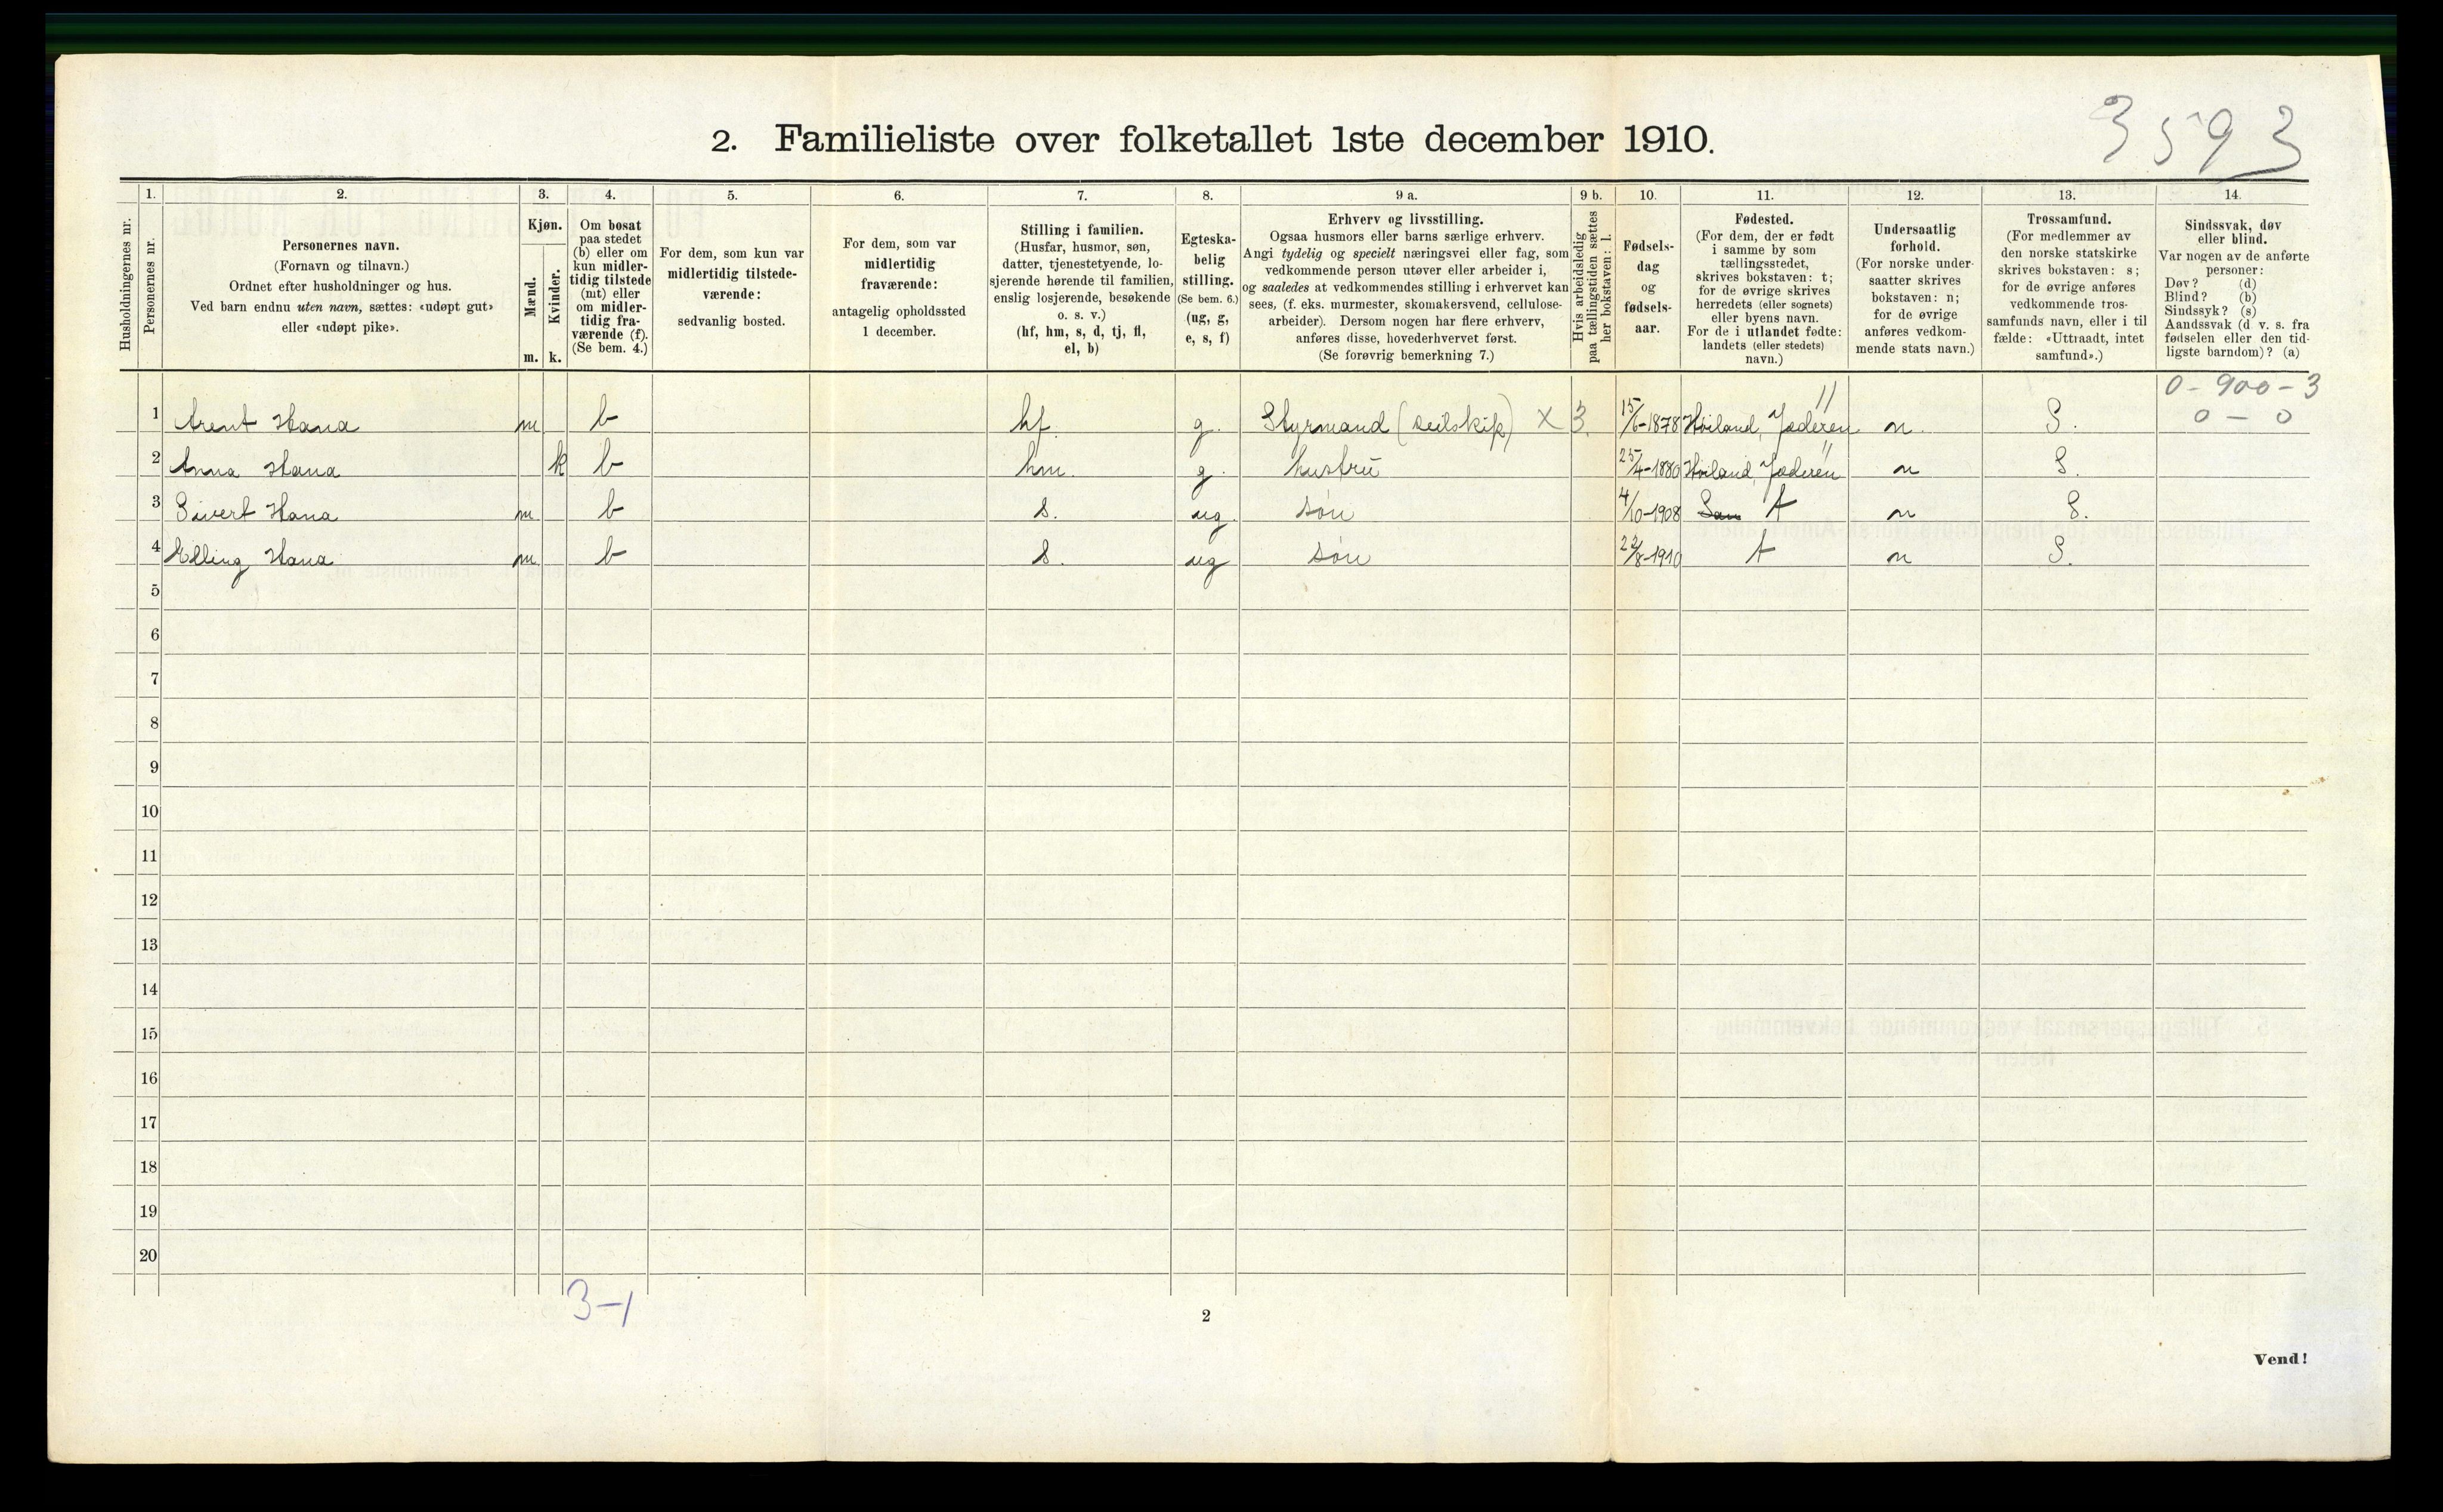 3593
2. Familieliste over folketallet 1ste december 1910.
Husholdningernes nr.
1.
Personernes nr.
2.
Personernes navn.
(Fornavn og tilnavn.)
Ordnet efter husholdninger og hus.
Ved barn endnu uten navn, sættes: «udøpt gut»
eller «udøpt pike».
3.
Kjøn.
Mænd.
m.
Kvinder.
k.
4.
Om bosat
paa stedet
(b) eller om
kun midler-
tidig tilstede
(mt) eller
om midler-
tidig fra-
værende (f).
(Se bem. 4.)
5.
For dem, som kun var
midlertidig tilstede-
værende:
sedvanlig bosted.
6.
For dem, som var
midlertidig
fraværende:
antagelig opholdssted
1 december.
7.
Stilling i familien.
(Husfar, husmor, søn,
datter, tjenestetyende, lo-
sjerende hørende til familien,
enslig losjerende, besøkende
o. s. v.)
(hf, hm, s, d, tj, fl,
el, b)
8.
Egteska-
belig
stilling.
(Se bem. 6.)
(ug, g,
e, s, f)
9 a.
Erhverv og livsstilling.
Ogsaa husmors eller barns særlige erhverv.
Angi tydelig og specielt næringsvei eller fag, som
vedkommende person utøver eller arbeider i,
og saaledes at vedkommendes stilling i erhvervet kan
sees, (f. eks. murmester, skomakersvend, cellulose-
arbeider). Dersom nogen har flere erhverv,
anføres disse, hovederhvervet først.
(Se forøvrig bemerkning 7.)
9 b.
Hvis arbeidsledig
paa tællingstiden sættes
her bokstaven: l.
10.
Fødsels-
dag
og
fødsels-
aar.
11.
Fødested.
(For dem, der er født
i samme by som
tællingsstedet,
skrives bokstaven: t;
for de øvrige skrives
herredets (eller sognets)
eller byens navn.
For de i utlandet fødte:
landets (eller stedets)
navn.)
12.
Undersaatlig
forhold.
(For norske under-
saatter skrives
bokstaven: n;
for de øvrige
anføres vedkom-
mende stats navn.)
13.
Trossamfund.
(For medlemmer av
den norske statskirke
skrives bokstaven: s;
for de øvrige anføres
vedkommende tros-
samfunds navn, eller i til
fælde: «Uttraadt, intet
samfund».)
14.
Sindssvak, døv
eller blind.
Var nogen av de anførte
personer:
Døv? (d)
Blind? (b)
Sindssyk? (s)
Aandssvak (d v. s. fra
fødselen eller den tid-
ligste barndom)? (a)
0-900-3
1 Arent Hana m b hf. g. Styrmand (seilskip) X 3. 15/6-1878 Høiland, Jæderen 11 n. S. 0-0
2 Anna Hana k b hm. g. hustru 25/4-1880 Høiland, Jæderen 11 n S.
3 Sivert Hana m b s. ug. søn 4/10-1908 t n S.
4 Elling Hana m b s. ug søn 22/8-1910 t n S.
5
6
7
8
9
10
11
12
13
14
15
16
17
18
19
20
3-1
2
Vend!